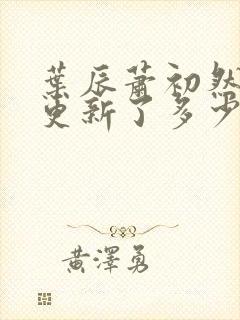 葉辰蕭初然
更新了多少
黃澤勇